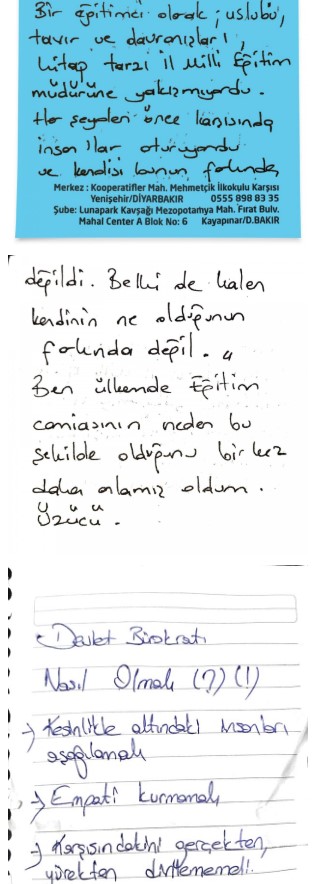 Bir eğitimci olarak; uslubu,
tavır ve davranışları,
hitap tarzı il Milli Eğitim
müdürüne yakışmıyordu.
Her şeyden önce karşısında
insanlar oturuyordu
ve kendisi bunun farkında
Merkez : Kooperatifler Mah. Mehmetçik İlkokulu Karşısı
Yenişehir/DİYARBAKIR 0555 898 83 35
Şube: Lunapark Kavşağı Mezopotamya Mah. Fırat Bulv.
Mahal Center A Blok No: 6 Kayapınar/D.BAKIR
değildi. Belki de halen
kendinin ne olduğunun
farkında değil.
Ben ülkemde Eğitim
camiasının neden bu
şekilde olduğunu bir kez
daha anlamış oldum.
Üzücü.
Devlet Bürokratı
Nasıl Olmalı (?) (!)
→ Kesinlikle altındaki insanları
aşağılamalı
→ Empati kurmamalı
→ Karşısındakini gerçekten,
yürekten dinlememeli.